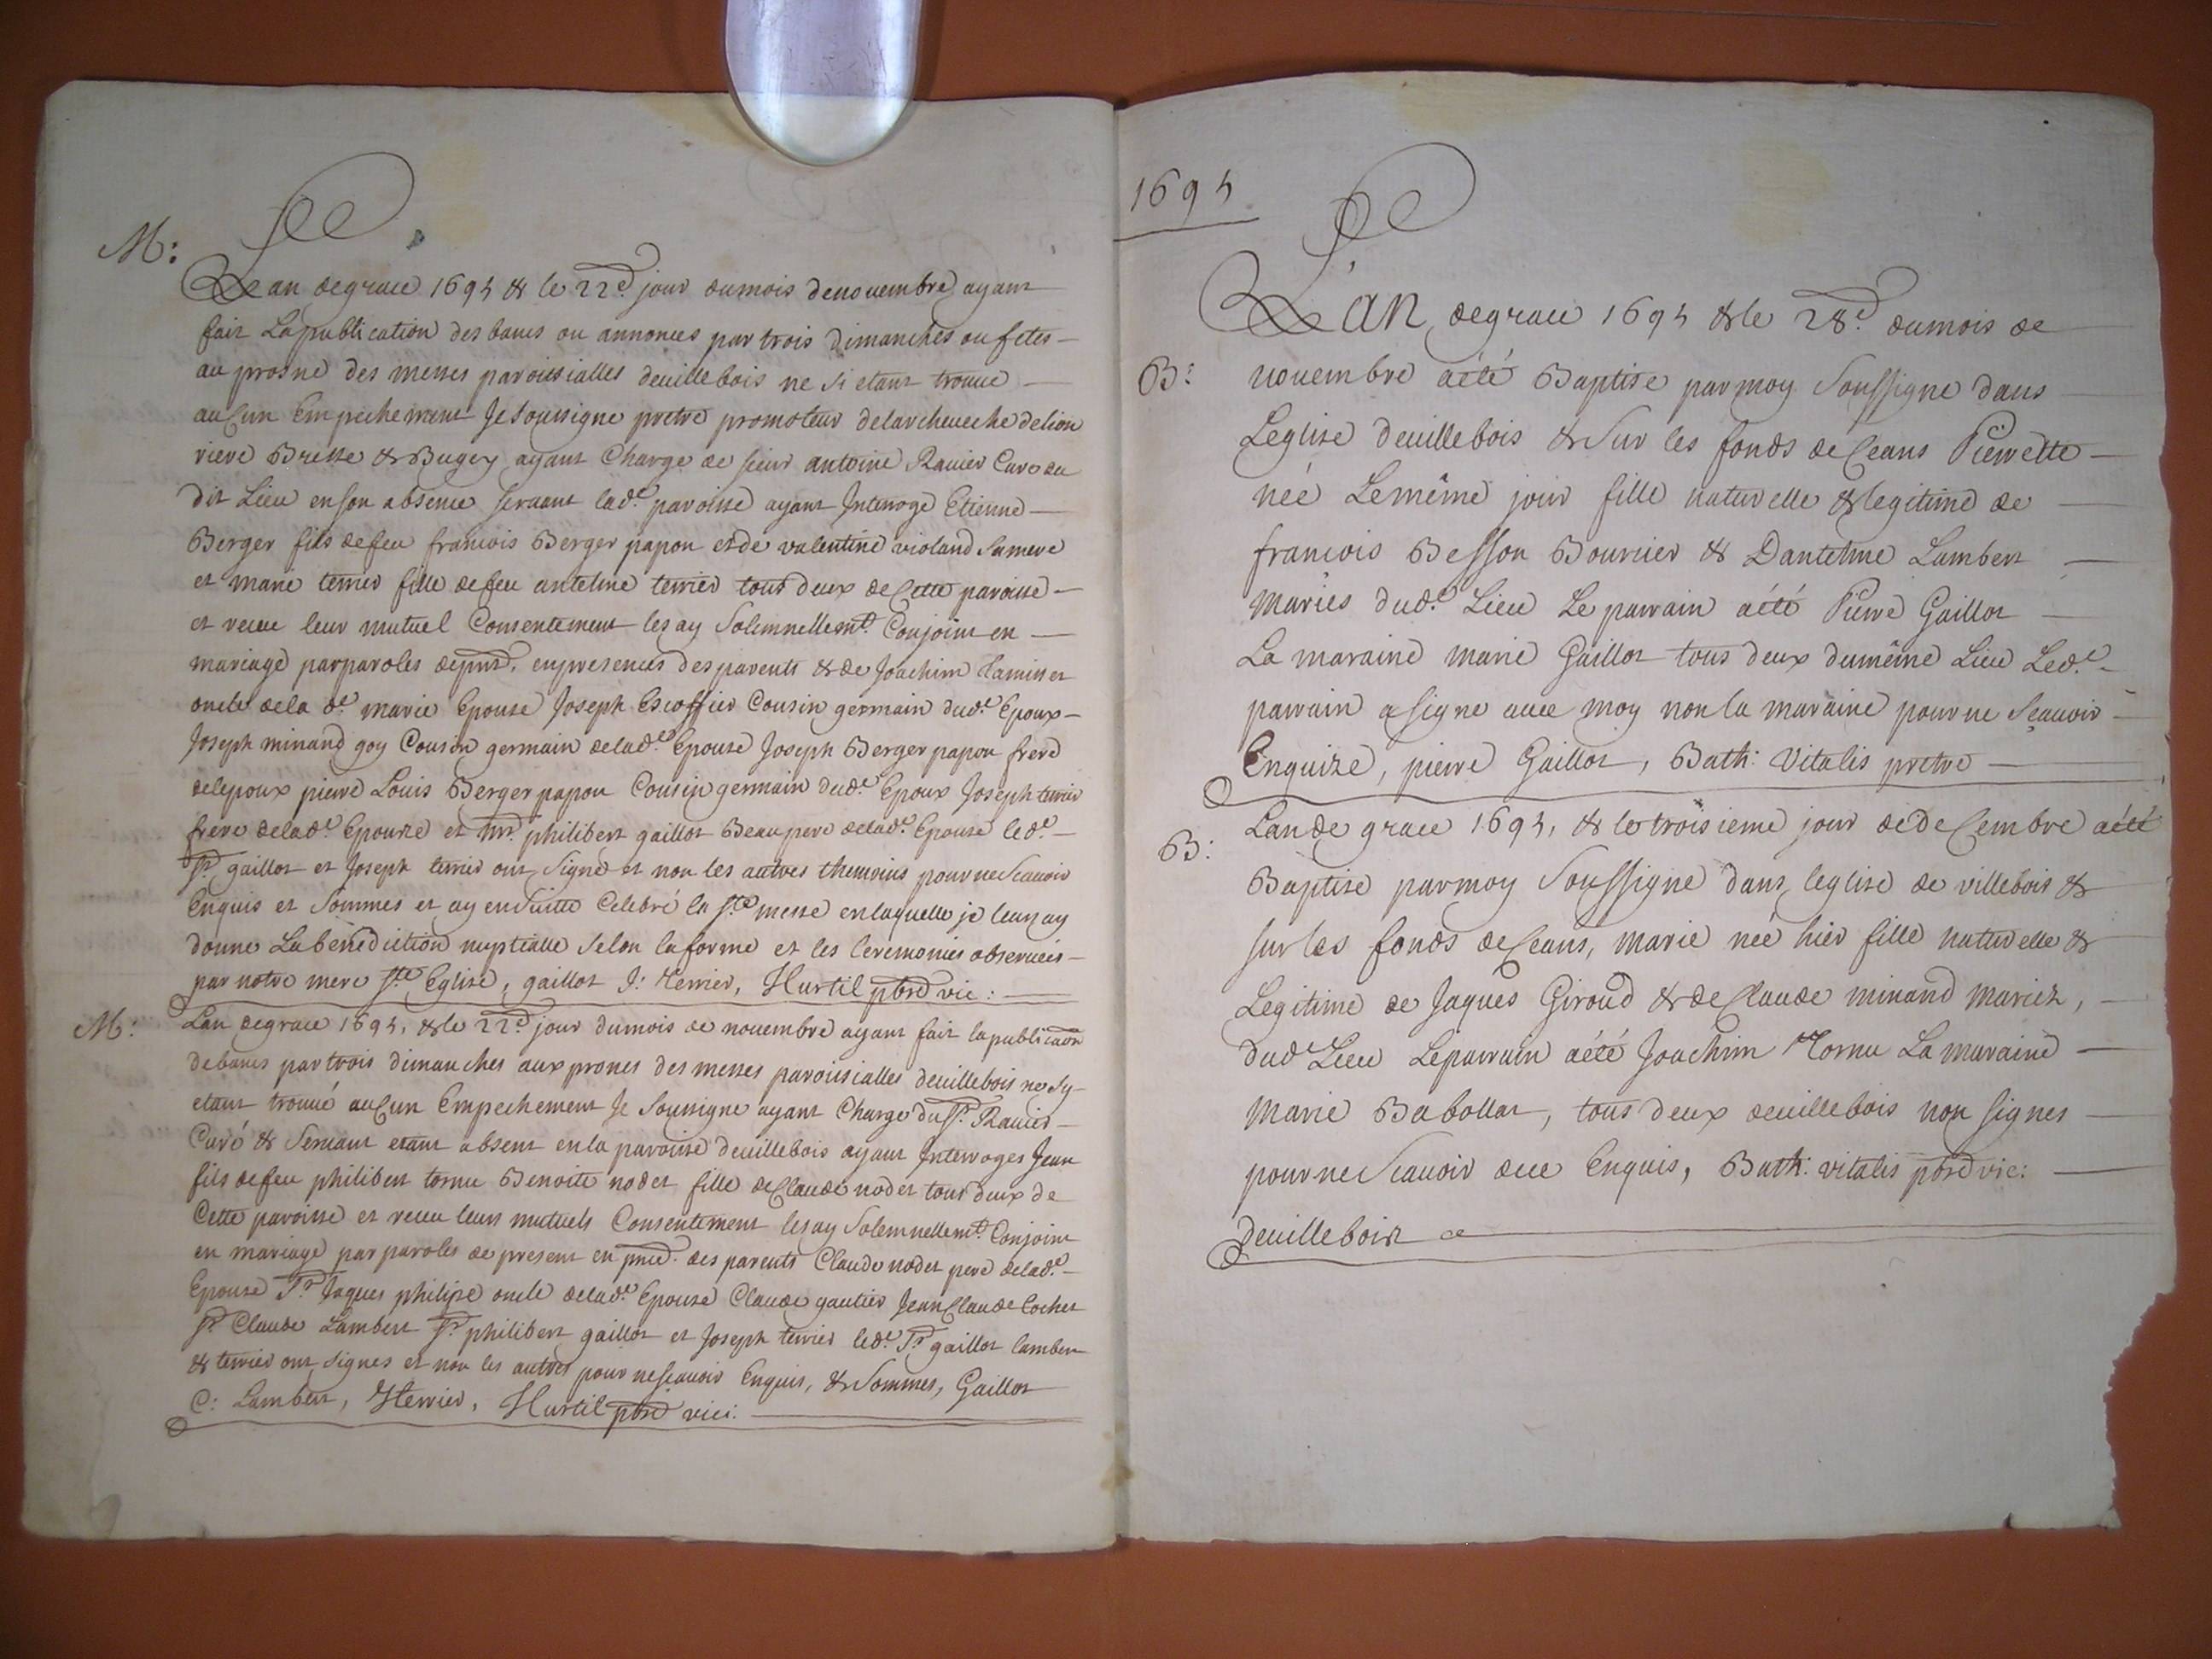 M:
L'an de grace 1695 & le 22e. jour du mois de novembre ayant
fait La publication des bancs ou annonces par trois dimanches ou fetes
au prosne des messes paroissialles de villebois ne si etant trouve
aucun Empechement Je soussigne pretre promoteur de larcheveche de lion
riere Bresse & Bugey ayant Charge de sieur antoine Ravier Cure du
dit Lieu en son absence servant lade. paroisse ayant Interroge Etienne
Berger fils de feu francois Berger papon et de valentine violand sa mere
et marie terrier fille de feu antelme terrier tous deux de Cette paroisse
et receu leur mutuel Consentement les ay Solemnellemt. Conjoint en
mariage par paroles de pnt. en presences des parents & de Joachim
oncle de la de. marie Epouse Joseph Escoffier Cousin germain dude. Epoux
Joseph minand goy Cousin germain de lade. Epouse Joseph Berger papon frere
de lepoux pierre Louis Berger papon Cousin germain dude. Epoux Joseph terrier
frere de lade. Epouze et mr. philibert gaillot Beaupere de lade. Epouse lede.
sr. gaillot et Joseph terrier ont Signe et non les autres themoins pour ne Scavoir
Enquis et Sommes et ay en Suitte Celebré la ste messe en laquelle je leur ay
donne La benediction nuptialle Selon la forme et les Ceremonies observeés
par notre mere ste Eglise, gaillot J: terrier, Hurtil pbre vic:
M:
Lan de grace 1695, & le 22e jour du mois de novembre ayant fait la publicaon
de bancs par trois dimanches aux prones des messes paroissialles de villebois ne sy
etant trouvé aucun Empechement Je Soussigne ayant Charge du sr. Ravier
Curé & Servant etant absent en la paroisse de villebois ayant Interroges Jean
fils de feu philibert tornu Benoite nodet fille de Claude nodet tous deux de
Cette paroisse et receu leurs mutuels Consentement les ay Solemnellemt. Conjoint
en mariage par paroles de present en pnce. des parents Claude nodet pere de lade.
Epouse Sr. Jaques philipe oncle de lade. Epouse Claude gautier Jean Claude Cochet
sr. Claude Lambert sr. philibert gaillot et Joseph terrier lede. Sr. gaillot lambert
& terrier ont signes et non les autres pour ne scavoir Enquis, & Sommes, Gaillot
C: Lambert, J terrier, Hurtil pbre vici:
1695
L'AN de grace 1695 & le 28e. du mois de
B:
novembre aété Baptise par moy Soussigne dans
Leglise de villebois & Sur les fonds de Ceans Pierrette
neé Le même jour fille naturelle & legitime de
francois Besson Bournier & Dantelme Lambert
Mariés dude. Lieu Le parrain aété Pierre Gaillot
La maraine marie Gaillot tous deux du même Lieu Lede.
parrain a signe avec moy non la maraine pour ne Scavoir
Enquize, pierre Gaillot, Bath: Vitalis pretre
B:
Lan de grace 1695, & le troisieme jour de decembre aété
Baptise par moy Soussigne dans leglise de villebois &
sur les fonds de Ceans, marie neé hier fille naturelle &
Legitime de Jaques Giroud & de Claude minand mariez,
dude Lieu Le parrain aété Joachim Tornu La maraine
Marie Babollat, tous deux de villebois non signes
pour ne Scavoir dece Enquis, Bath: vitalis pbre vic:
de villebois